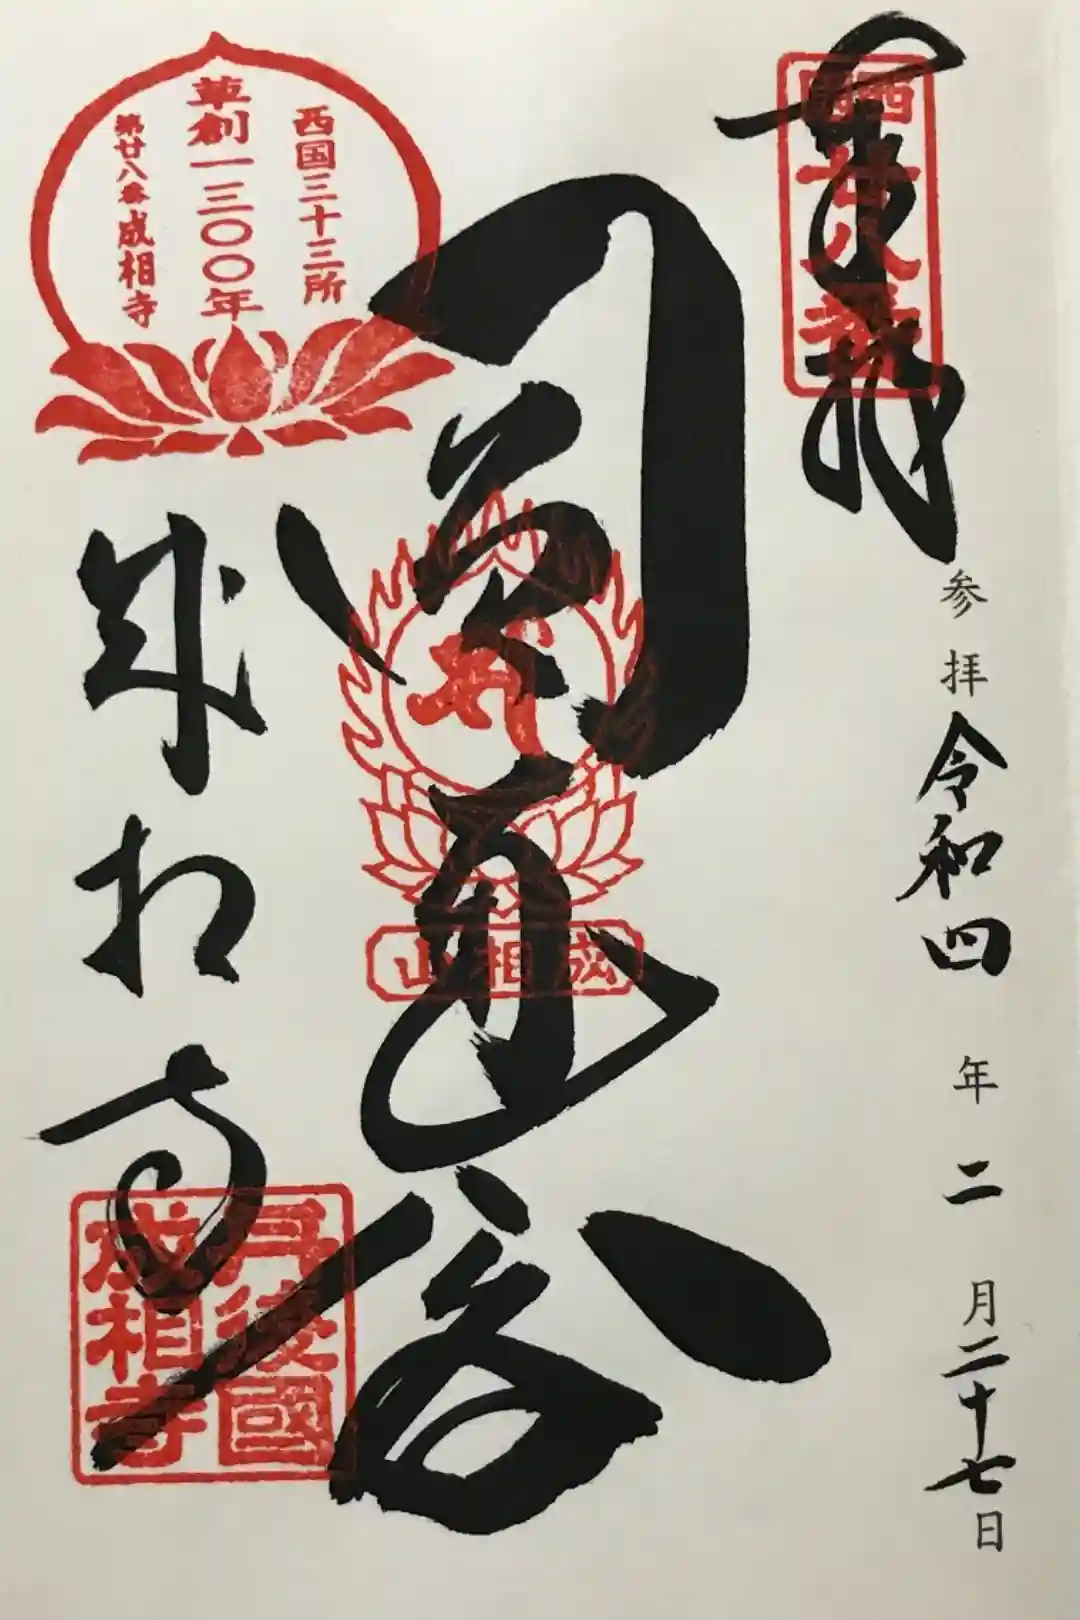 奉拝
西國廿八番
参拝 令和四年二月二十七日
成相山
西国三十三所
草創一三〇〇年
第廿八番成相寺
成相寺
丹後國
成相寺